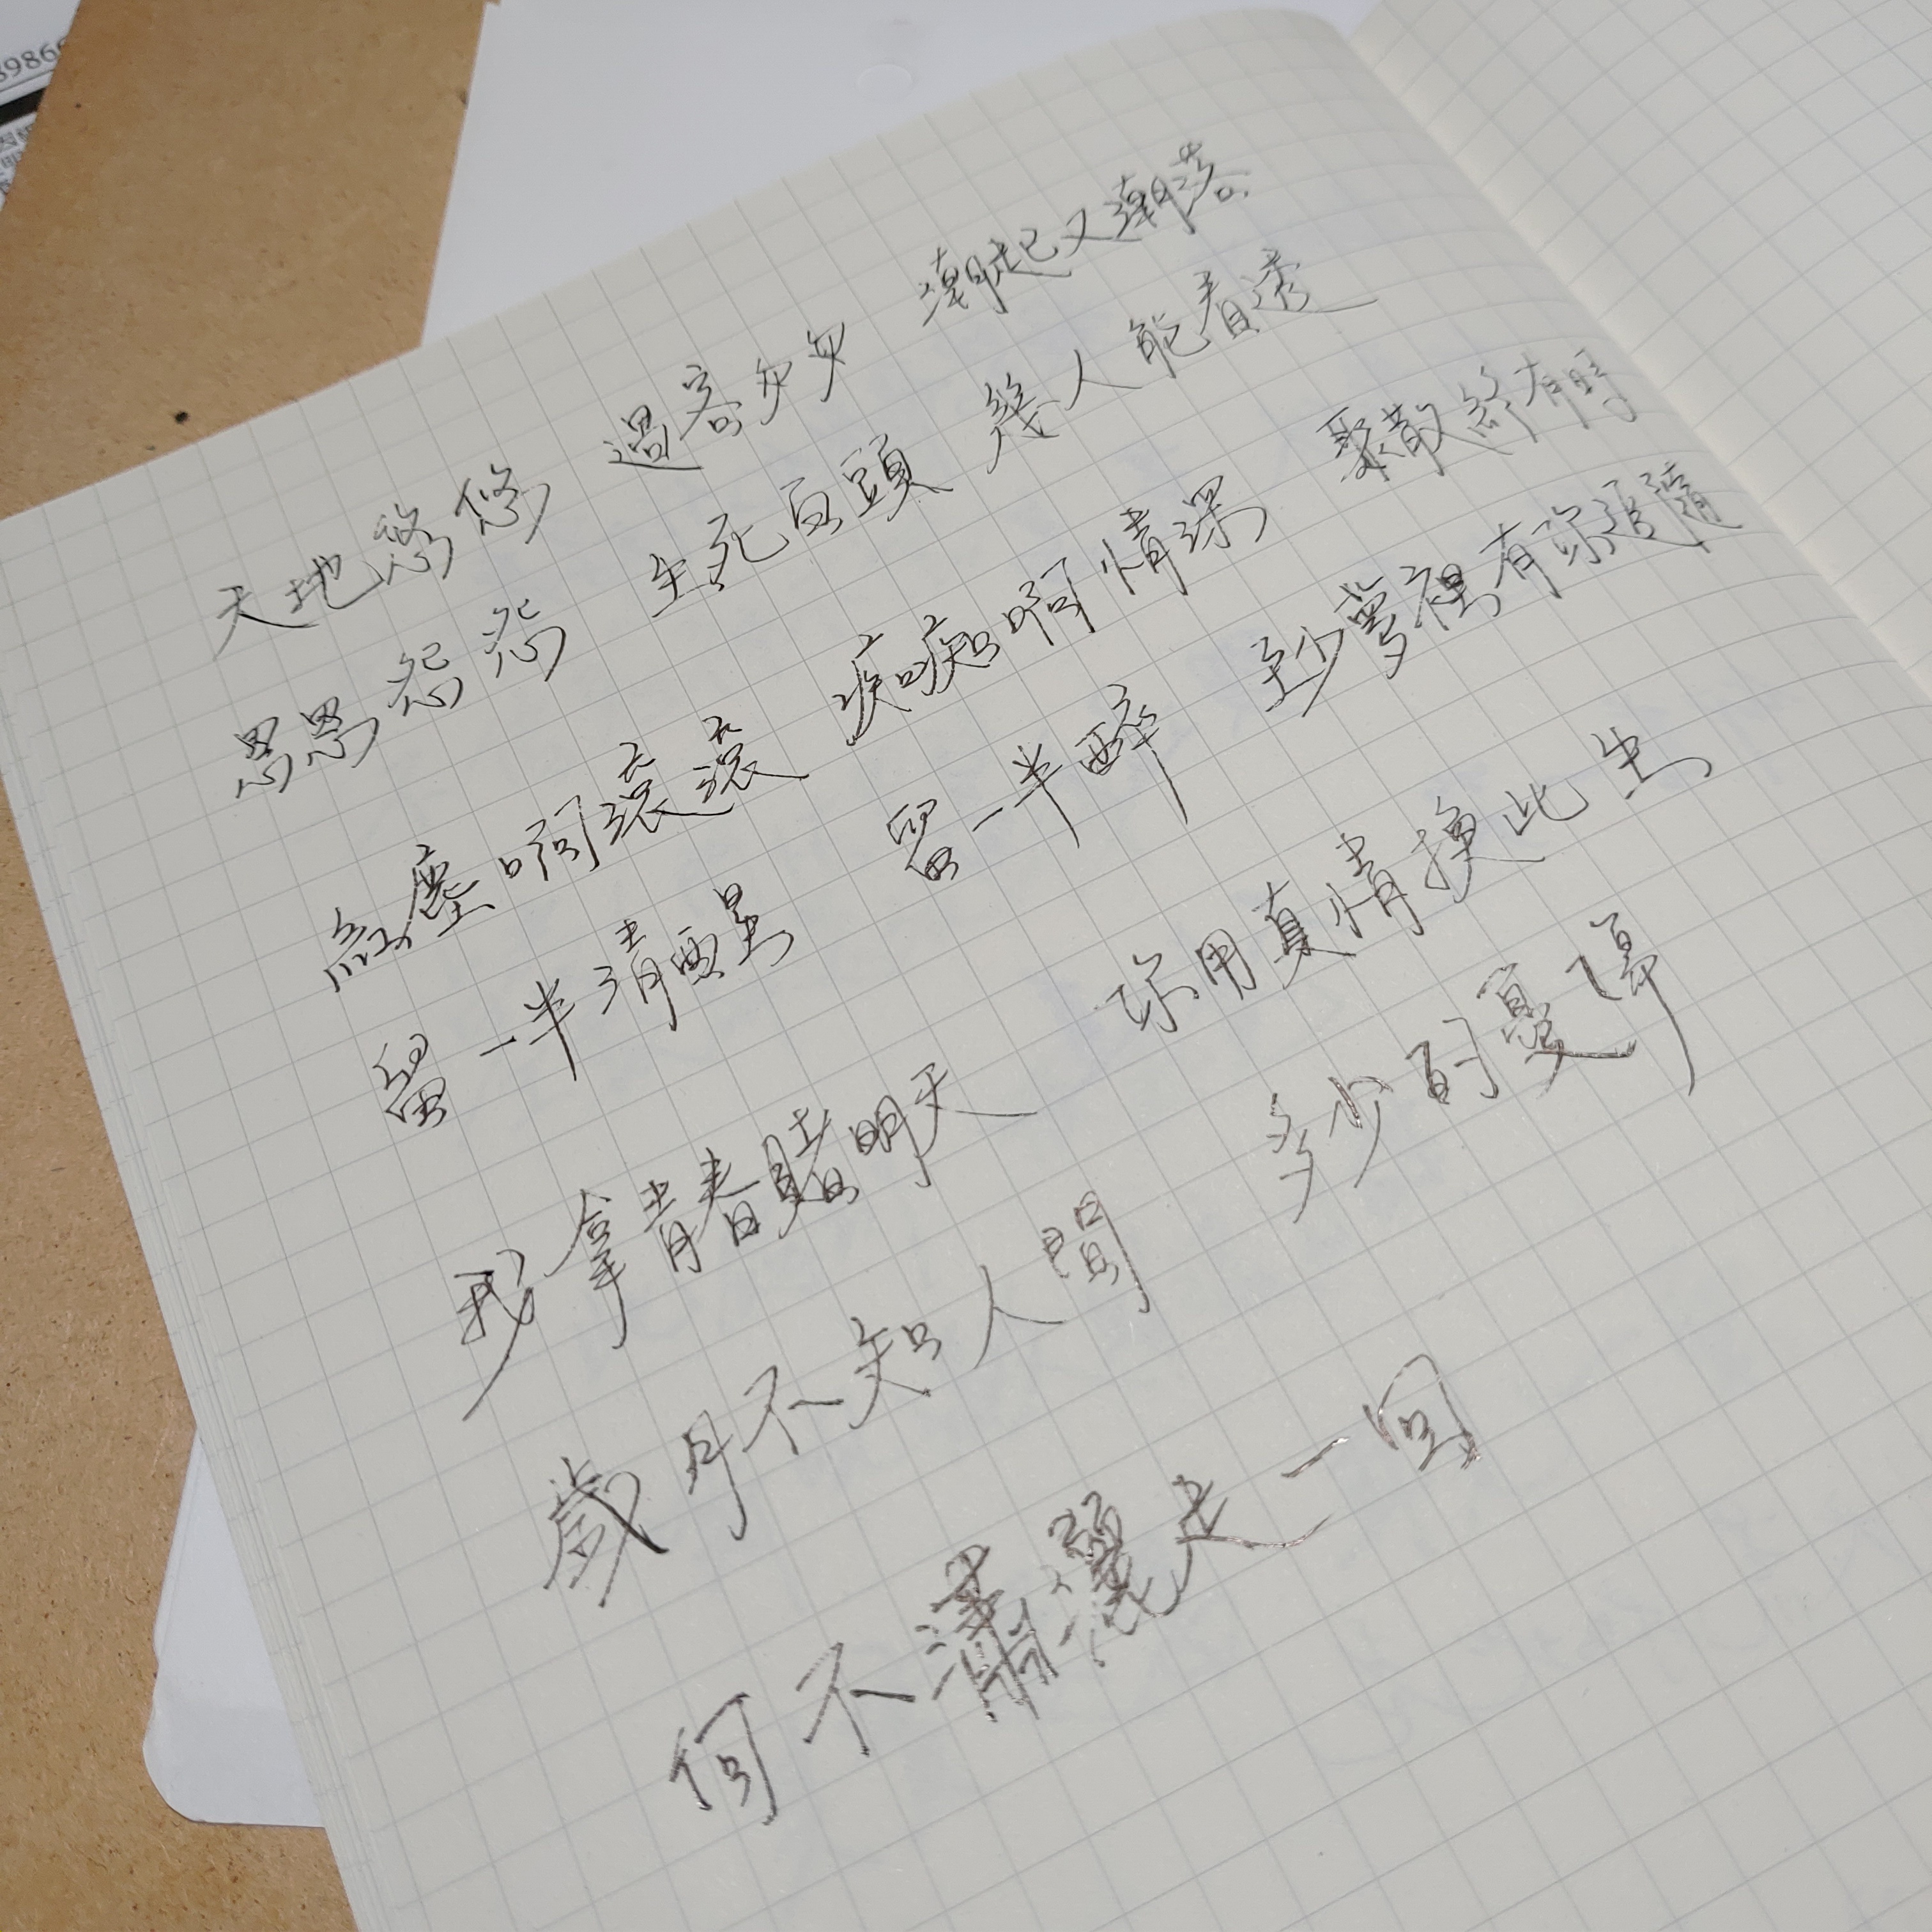 天地悠悠 過客匆匆 潮起又潮落
恩恩怨怨 生死白頭 幾人能看透
紅塵啊滾滾 痴痴啊情深 聚散終有時
留一半清醒 留一半醉 至少夢裡有你追隨
我拿青春賭明天 你用真情換此生
歲月不知人間 多少的憂傷
何不瀟灑走一回
8986